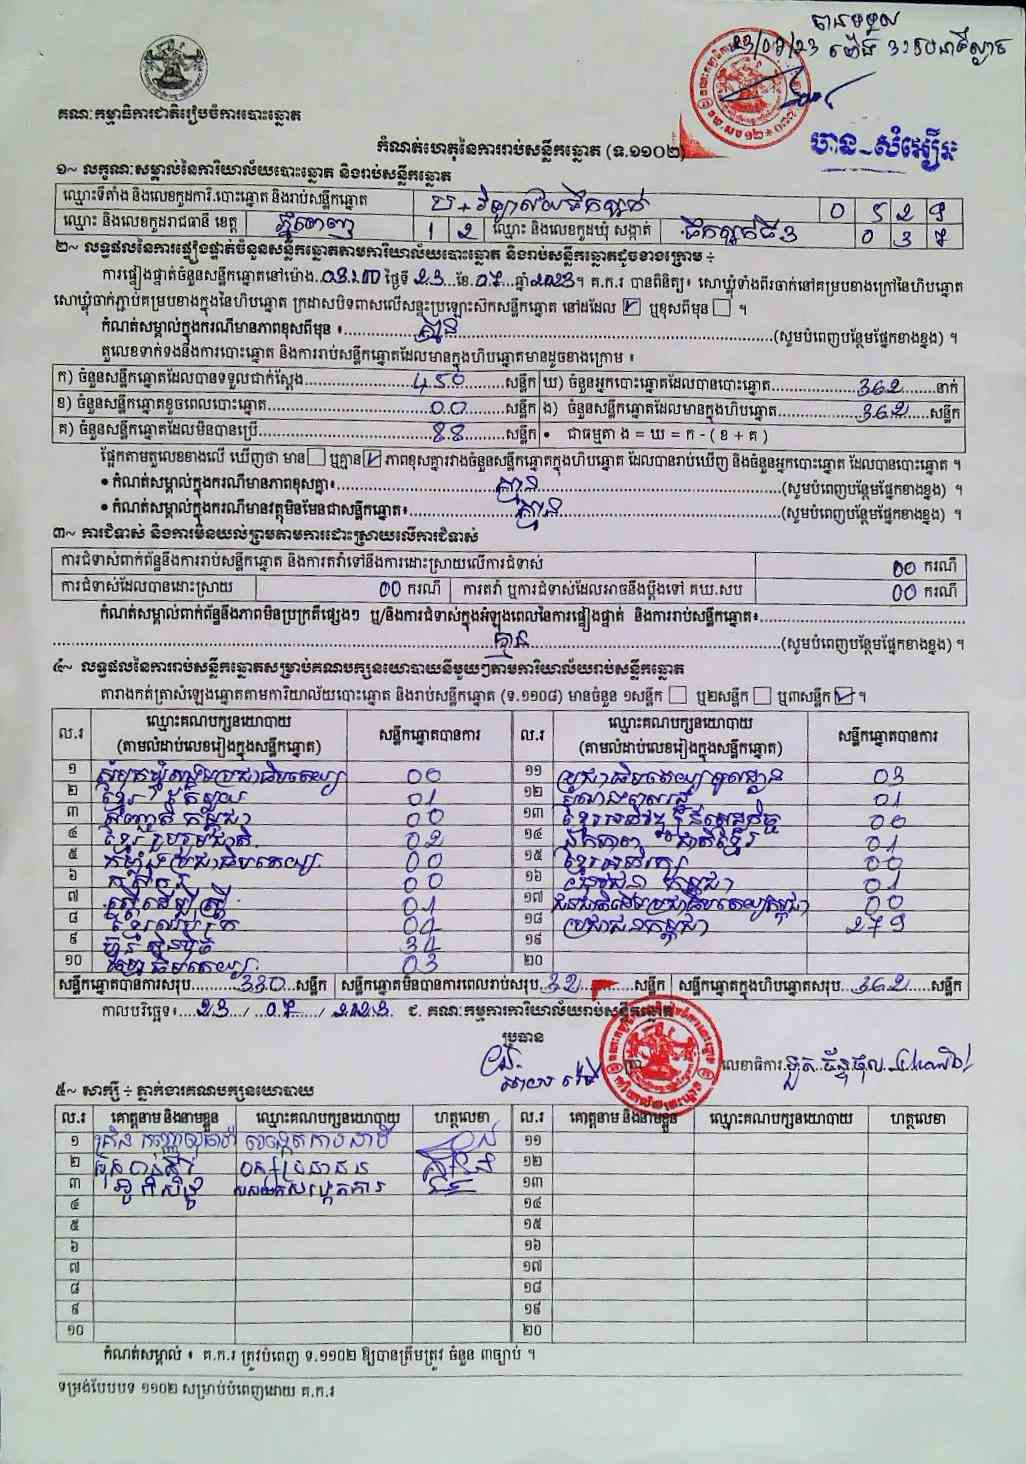 បានទទួល
23/07/23 ម៉ោង 3:50 នាទីល្ងាច
គណៈកម្មាធិការជាតិរៀបចំការបោះឆ្នោត
បាន-សំអៀង
កំណត់ហេតុនៃការរាប់សន្លឹកឆ្នោត (ទ.១១០២)
១~ លក្ខណៈសម្គាល់នៃការិយាល័យបោះឆ្នោត និងរាប់សន្លឹកឆ្នោត
ឈ្មោះទីតាំង និងលេខកូដការិ.បោះឆ្នោត និងរាប់សន្លឹកឆ្នោត វិទ្យាល័យទឹកល្អក់ 0 5 2 9
ឈ្មោះ និងលេខកូដរាជធានី ខេត្ត ភ្នំពេញ 1 2 ឈ្មោះ និងលេខកូដឃុំ សង្កាត់ ទឹកល្អក់ទី3 0 3 7
២~ លទ្ធផលនៃការផ្ទៀងផ្ទាត់ចំនួនសន្លឹកឆ្នោតតាមការិយាល័យបោះឆ្នោត និងរាប់សន្លឹកឆ្នោតដូចខាងក្រោម ÷
ការផ្ទៀងផ្ទាត់ចំនួនសន្លឹកឆ្នោតនៅម៉ោង 03:00 ថ្ងៃទី 23 ខែ 07 ឆ្នាំ 2023។ គ.ក.រ បានពិនិត្យ៖ សោឃ្លុំទាំងពីរចាក់នៅគម្របខាងក្រៅនៃហិបឆ្នោត
សោឃ្លុំចាក់ភ្ជាប់គម្របខាងក្នុងនៃហិបឆ្នោត ក្រដាសបិទពាសលើសន្ទះប្រឡោះស៊កសន្លឹកឆ្នោត នៅដដែល ☑ ឬខុសពីមុន ☐ ។
កំណត់សម្គាល់ក្នុងករណីមានភាពខុសពីមុន ៖ គ្មាន (សូមបំពេញបន្ថែមផ្នែកខាងខ្នង) ។
តួលេខទាក់ទងនឹងការបោះឆ្នោត និងការរាប់សន្លឹកឆ្នោតដែលមានក្នុងហិបឆ្នោតមានដូចខាងក្រោម ៖
ក) ចំនួនសន្លឹកឆ្នោតដែលបានទទួលជាក់ស្តែង 450 សន្លឹក ឃ) ចំនួនអ្នកបោះឆ្នោតដែលបានបោះឆ្នោត 362 នាក់
ខ) ចំនួនសន្លឹកឆ្នោតខូចពេលបោះឆ្នោត 00 សន្លឹក ង) ចំនួនសន្លឹកឆ្នោតដែលមានក្នុងហិបឆ្នោត 362 សន្លឹក
គ) ចំនួនសន្លឹកឆ្នោតដែលមិនបានប្រើ 88 សន្លឹក • ជាធម្មតា ង = ឃ = ក - ( ខ + គ )
ផ្អែកតាមតួលេខខាងលើ ឃើញថា មាន ☐ ឬគ្មាន ☑ ភាពខុសគ្នារវាងចំនួនសន្លឹកឆ្នោតក្នុងហិបឆ្នោត ដែលបានរាប់ឃើញ និងចំនួនអ្នកបោះឆ្នោត ដែលបានបោះឆ្នោត ។
• កំណត់សម្គាល់ក្នុងករណីមានភាពខុសគ្នា៖ គ្មាន (សូមបំពេញបន្ថែមផ្នែកខាងខ្នង) ។
• កំណត់សម្គាល់ក្នុងករណីមានវត្ថុមិនមែនជាសន្លឹកឆ្នោត៖ គ្មាន (សូមបំពេញបន្ថែមផ្នែកខាងខ្នង) ។
៣~ ការជំទាស់ និងការមិនយល់ព្រមតាមការដោះស្រាយលើការជំទាស់
ការជំទាស់ពាក់ព័ន្ធនឹងការរាប់សន្លឹកឆ្នោត និងការតវ៉ាទៅនឹងការដោះស្រាយលើការជំទាស់ 00 ករណី
ការជំទាស់ដែលបានដោះស្រាយ 00 ករណី ការតវ៉ា ឬការជំទាស់ដែលអាចនឹងប្តឹងទៅ គឃ.សប 00 ករណី
កំណត់សម្គាល់ពាក់ព័ន្ធនឹងភាពមិនប្រក្រតីផ្សេងៗ ឬ/និងការជំទាស់ក្នុងអំឡុងពេលនៃការផ្ទៀងផ្ទាត់ និងការរាប់សន្លឹកឆ្នោត៖
គ្មាន (សូមបំពេញបន្ថែមផ្នែកខាងខ្នង) ។
៤~ លទ្ធផលនៃការរាប់សន្លឹកឆ្នោតសម្រាប់គណបក្សនយោបាយនីមួយៗតាមការិយាល័យរាប់សន្លឹកឆ្នោត
តារាងកត់ត្រាសំឡេងឆ្នោតតាមការិយាល័យបោះឆ្នោត និងរាប់សន្លឹកឆ្នោត (ទ.១១០៨) មានចំនួន ១សន្លឹក ☐ ឬ២សន្លឹក ☐ ឬ៣សន្លឹក ☑ ។
ល.រ ឈ្មោះគណបក្សនយោបាយ (តាមលំដាប់លេខរៀងក្នុងសន្លឹកឆ្នោត) សន្លឹកឆ្នោតបានការ ល.រ ឈ្មោះគណបក្សនយោបាយ (តាមលំដាប់លេខរៀងក្នុងសន្លឹកឆ្នោត) សន្លឹកឆ្នោតបានការ
១ សំបុកឃ្មុំសង្គមប្រជាធិបតេយ្យ 00 ១១ ប្រជាធិបតេយ្យមូលដ្ឋាន 03
២ ខ្មែរ 01 ១២ 01
៣ សញ្ជាតិកម្ពុជា 00 ១៣ ខ្មែរអភិវឌ្ឍន៍សេដ្ឋកិច្ច 00
៤ ខ្មែររួបរួមជាតិ 02 ១៤ ឯកភាពជាតិខ្មែរ 01
៥ កម្លាំងប្រជាធិបតេយ្យ 00 ១៥ ខ្មែរអភិរក្ស 00
៦ កសិករ 00 ១៦ យុវជនកម្ពុជា 01
៧ ស្ត្រីដើម្បីស្ត្រី 01 ១៧ ជនជាតិដើមប្រជាធិបតេយ្យកម្ពុជា 00
៨ ខ្មែរឈប់ក្រ 04 ១៨ ប្រជាជនកម្ពុជា 279
៩ ហ៊្វុនស៊ិនប៉ិច 34 ១៩
១០ ប្រជាធិបតេយ្យ 03 ២០
សន្លឹកឆ្នោតបានការសរុប 330 សន្លឹក សន្លឹកឆ្នោតមិនបានការពេលរាប់សរុប 32 សន្លឹក សន្លឹកឆ្នោតក្នុងហិបឆ្នោតសរុប 362 សន្លឹក
កាលបរិច្ឆេទ៖ 23 / 07 / 2023 ជ. គណៈកម្មការការិយាល័យរាប់សន្លឹកឆ្នោត
ប្រធាន
លេខាធិការ
៥~ សាក្សី ÷ ភ្នាក់ងារគណបក្សនយោបាយ
ល.រ គោត្តនាម និងនាមខ្លួន ឈ្មោះគណបក្សនយោបាយ ហត្ថលេខា ល.រ គោត្តនាម និងនាមខ្លួន ឈ្មោះគណបក្សនយោបាយ ហត្ថលេខា
១ ១១
២ ១២
៣ ១៣
៤ ១៤
៥ ១៥
៦ ១៦
៧ ១៧
៨ ១៨
៩ ១៩
១០ ២០
កំណត់សម្គាល់ ៖ គ.ក.រ ត្រូវបំពេញ ទ.១១០២ ឱ្យបានត្រឹមត្រូវ ចំនួន ៣ច្បាប់ ។
ទម្រង់បែបបទ ១១០២ សម្រាប់បំពេញដោយ គ.ក.រ